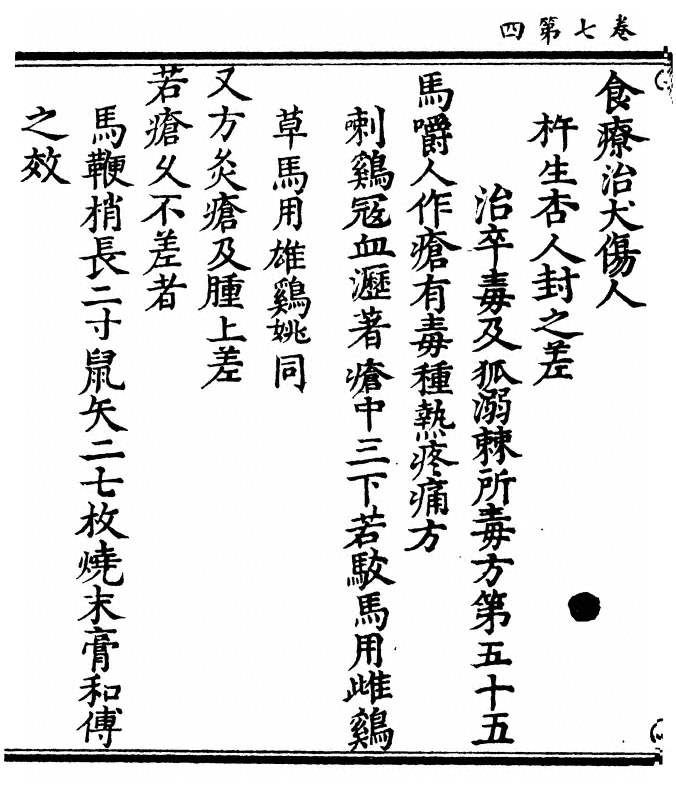 卷七第四
食療治犬傷人
杵生杏人封之差
治卒毒及狐溺棘所毒方第五十五
馬嚼人作瘡有毒種熱疼痛方
刺鷄冠血瀝著瘡中三下若駮馬用雌鷄
草馬用雄鷄姚同
又方灸瘡及腫上差
若瘡久不差者
馬鞭梢長二寸鼠矢二七枚燒末膏和傅
之效